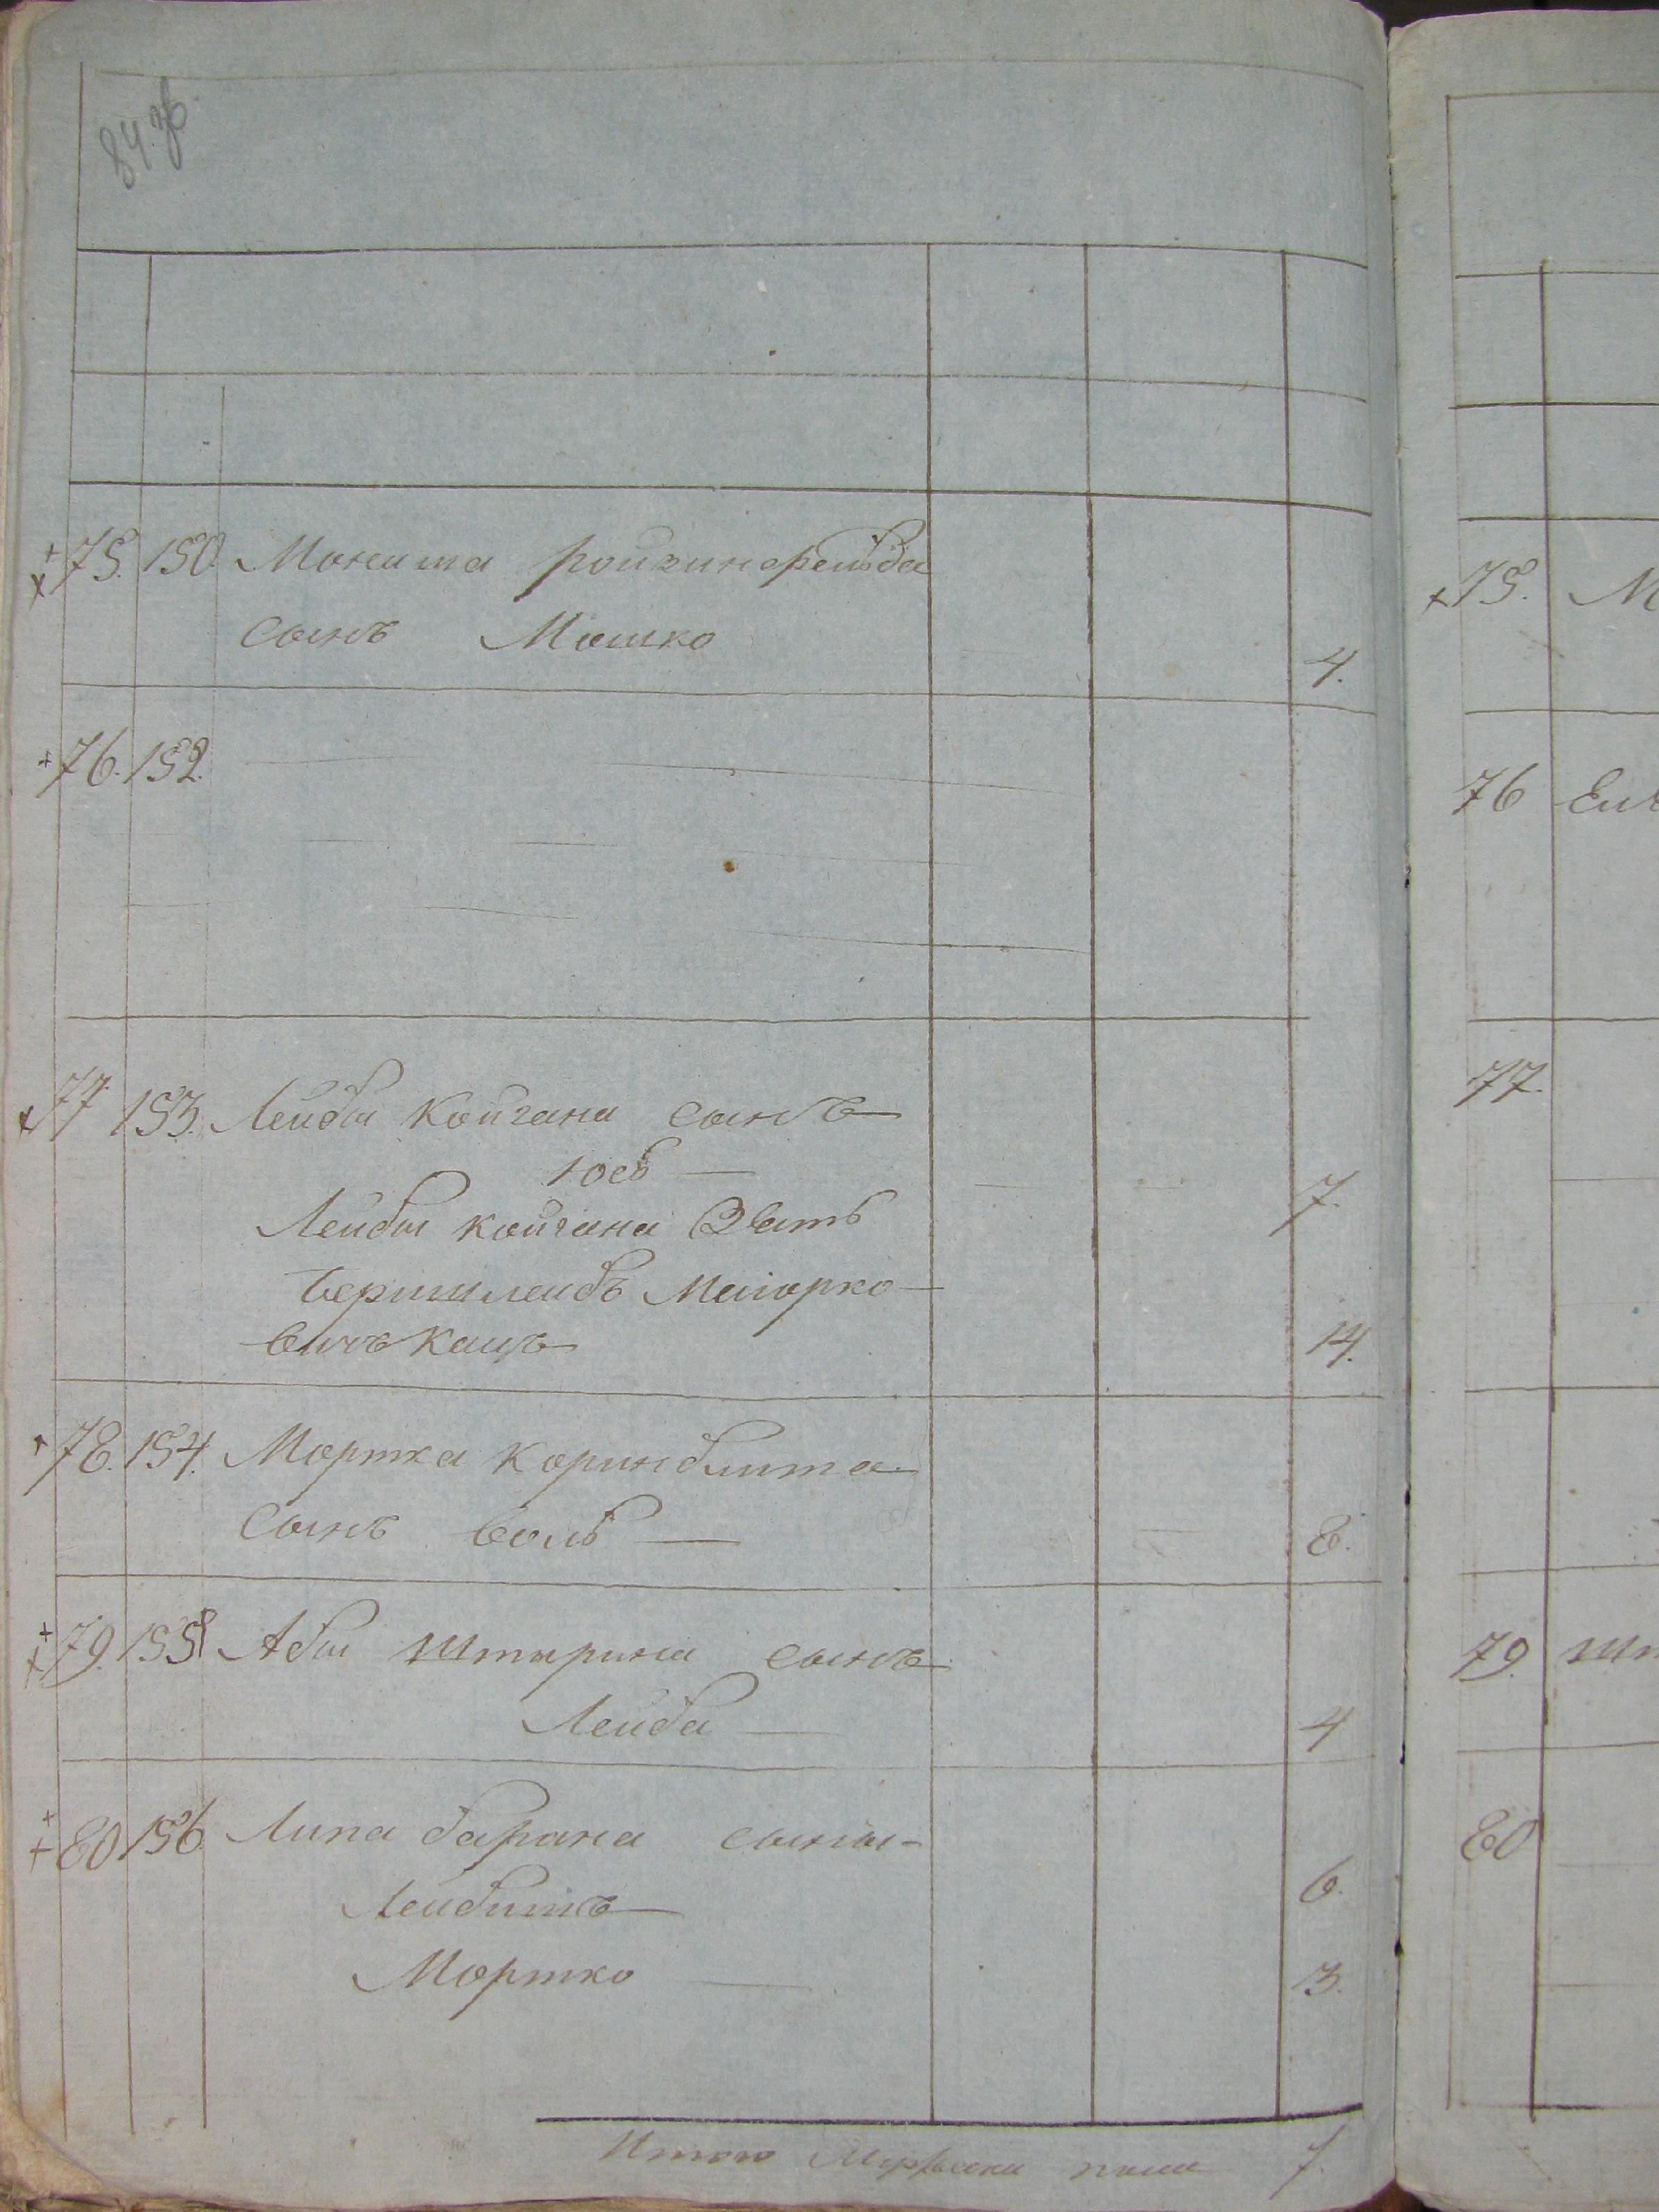 84 об.
75. 150. Мошита ройзинфельда
сынъ Мошко 4.
76. 152.
77 153. Лейбы Койгана сынъ
Іосъ — 7.
Лейбы койгана Зять
Бершлейбъ Меіорко-
вичъ Кацъ 14.
78. 154. Мортка Коринблита
Сынъ Воль — 8.
79. 155 Абы Штырина сынъ
Лейба — 4
80 156. Липа барана сыны-
Лейбишъ — 6.
Мортко — 3.
Итого Мужеска пола 7.
75. М
76
77.
79. Шт
80